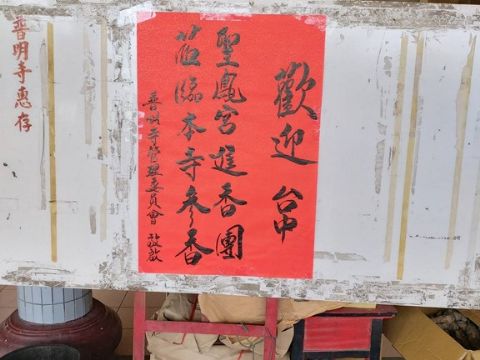 歡迎 台中
聖鳳宮進香團
蒞臨本寺參香
普明寺管理委員會 敬啟
普明寺惠存